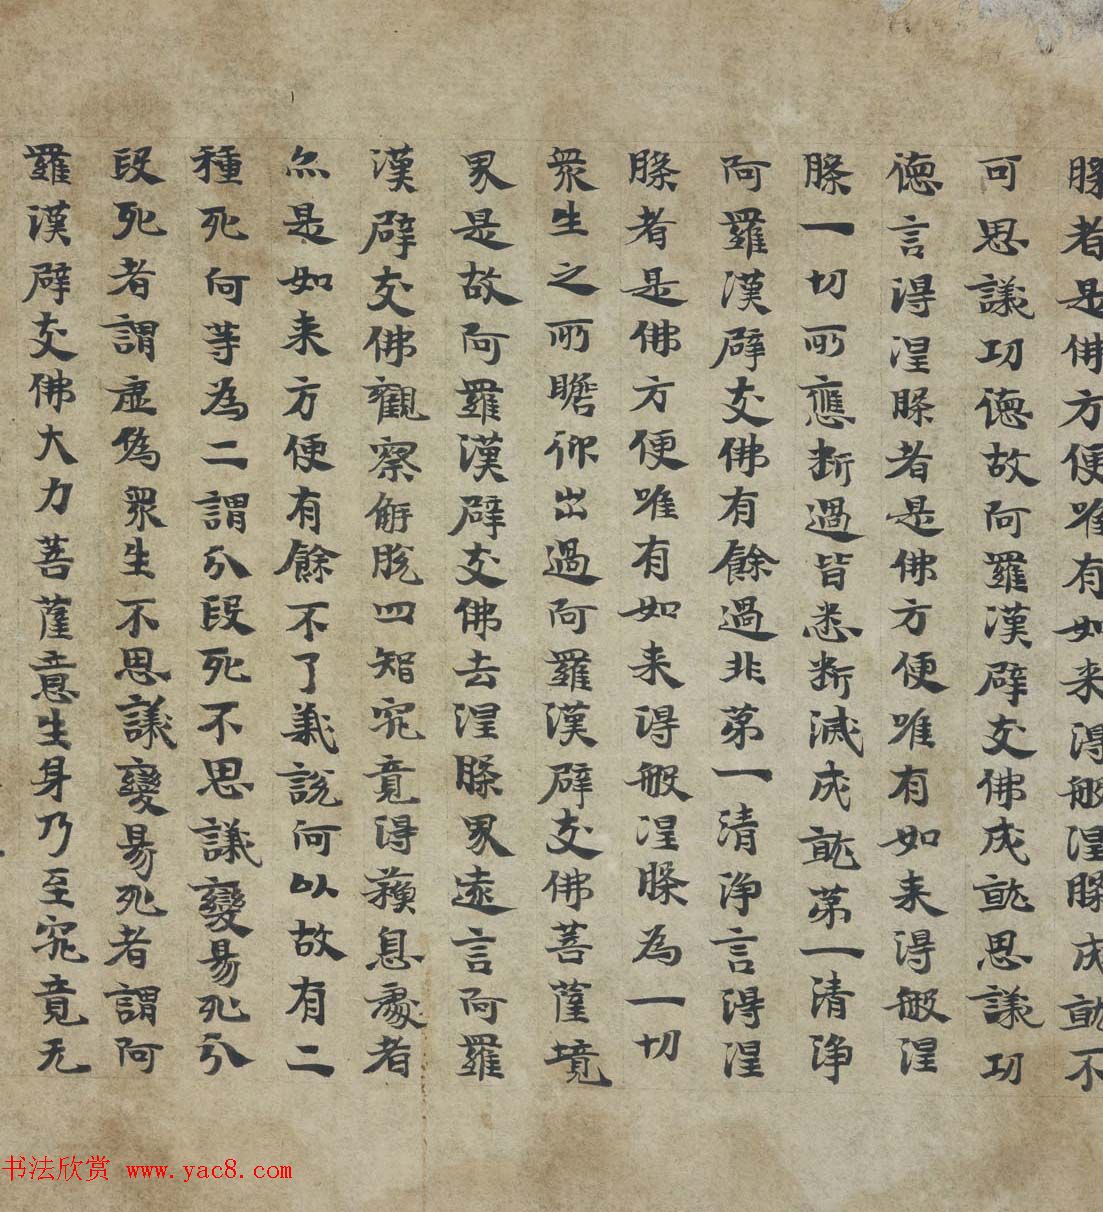 槃者是佛方便唯有如来得般涅槃成就不
可思議功德故阿羅漢辟支佛成就思議功
德言得涅槃者是佛方便唯有如来得般涅
槃一切所應断過皆悉断滅成就第一清浄
阿羅漢辟支佛有餘過非第一清浄言得涅
槃者是佛方便唯有如来得般涅槃為一切
衆生之所瞻仰出過阿羅漢辟支佛菩薩境
界是故阿羅漢辟支佛去涅槃界遠言阿羅
漢辟支佛觀察解脱四智究竟得蘇息處者
亦是如来方便有餘不了義說何以故有二
種死何等為二謂分段死不思議變易死分
段死者謂虚偽衆生不思議變易死者謂阿
羅漢辟支佛大力菩薩意生身乃至究竟无
书法欣赏 www.yac8.com